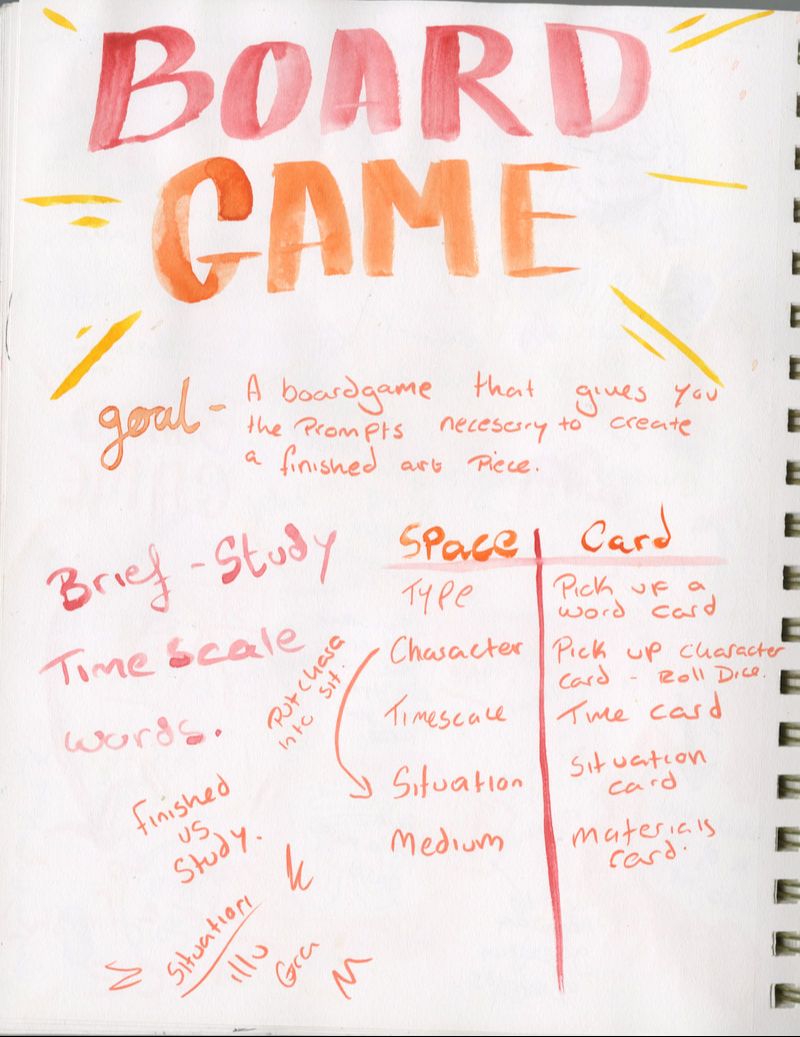 BOARD
GAME
goal - A boardgame that gives you
the Prompts necesery to create
a finished art Piece.
Brief - Study
Time scale
words.
Space Card
Type Pick up a
word card
Character Pick up character
card - Roll Dice.
Put chara
into sit.
Timescale Time card
Situation Situation
card
Medium Materials
card.
finished
vs
Study.
Situation
illu
Gra